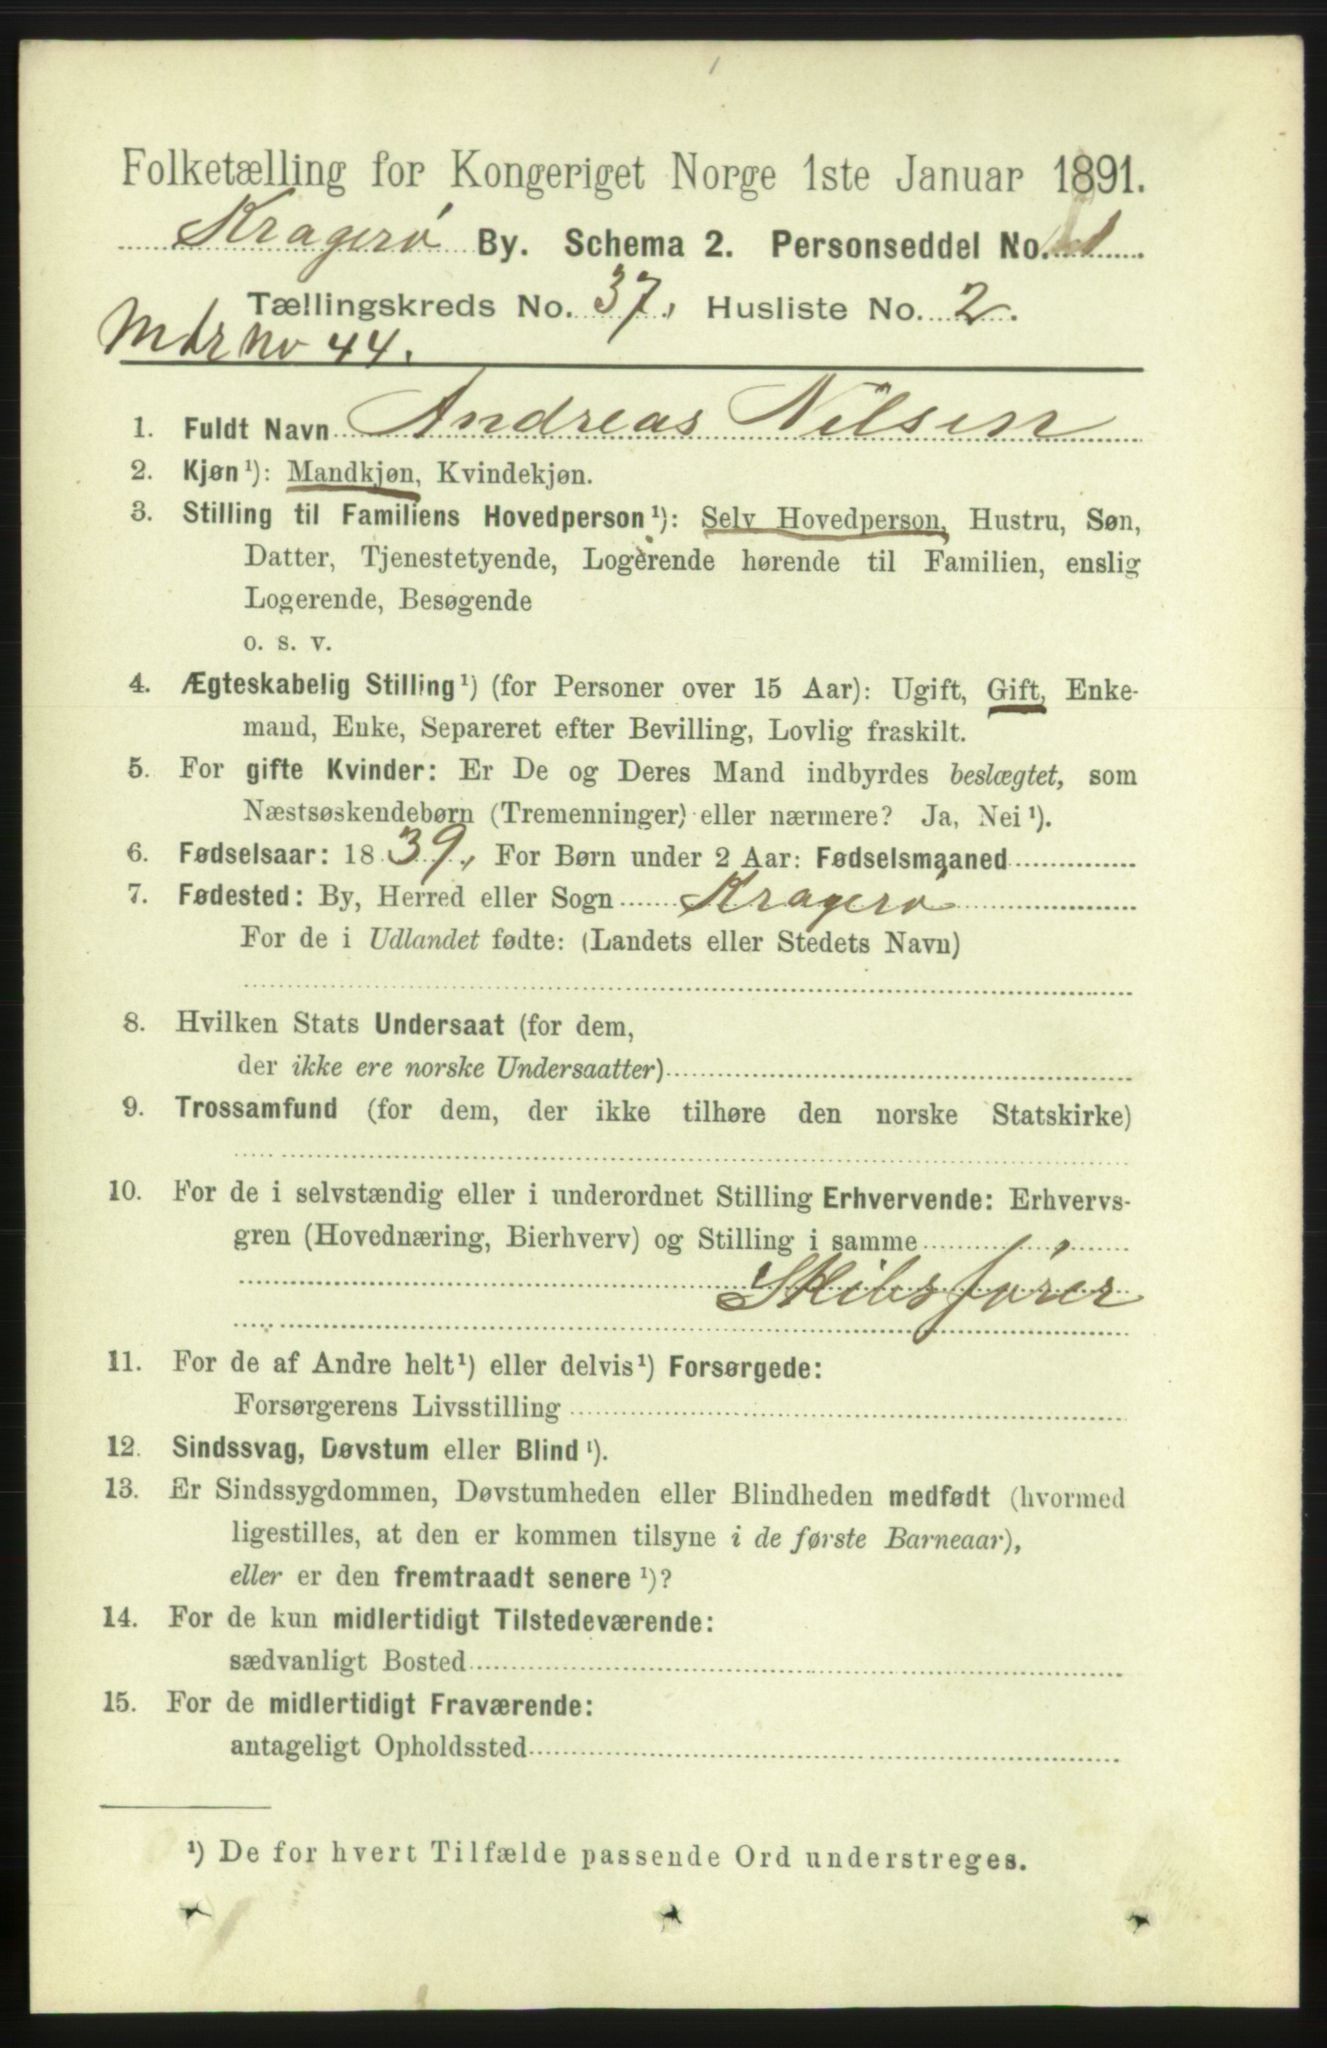 Folketælling for Kongeriget Norge 1ste Januar 1891.
Kragerø By. Schema 2. Personseddel No. 1
Tællingskreds No. 37. Husliste No. 2.
Mtr no 44.
1. Fuldt Navn Andreas Nilsen
2. Kjøn¹): Mandkjøn, Kvindekjøn.
3. Stilling til Familiens Hovedperson¹): Selv Hovedperson, Hustru, Søn,
Datter, Tjenestetyende, Logerende hørende til Familien, enslig
Logerende, Besøgende
o. s. v.
4. Ægteskabelig Stilling¹) (for Personer over 15 Aar): Ugift, Gift, Enke-
mand, Enke, Separeret efter Bevilling, Lovlig fraskilt.
5. For gifte Kvinder: Er De og Deres Mand indbyrdes beslægtet, som
Næstsøskendebørn (Tremenninger) eller nærmere? Ja, Nei¹).
6. Fødselsaar: 1839, For Børn under 2 Aar: Fødselsmaaned
7. Fødested: By, Herred eller Sogn Kragerø
For de i Udlandet fødte: (Landets eller Stedets Navn)
8. Hvilken Stats Undersaat (for dem,
der ikke ere norske Undersaatter)
9. Trossamfund (for dem, der ikke tilhøre den norske Statskirke)
10. For de i selvstændig eller i underordnet Stilling Erhvervende: Erhvervs-
gren (Hovednæring, Bierhverv) og Stilling i samme
Skibsfører
11. For de af Andre helt¹) eller delvis¹) Forsørgede:
Forsørgerens Livsstilling
12. Sindssvag, Døvstum eller Blind¹).
13. Er Sindssygdommen, Døvstumheden eller Blindheden medfødt (hvormed
ligestilles, at den er kommen tilsyne i de første Barneaar),
eller er den fremtraadt senere¹)?
14. For de kun midlertidigt Tilstedeværende:
sædvanligt Bosted
15. For de midlertidigt Fraværende:
antageligt Opholdssted
¹) De for hvert Tilfælde passende Ord understreges.